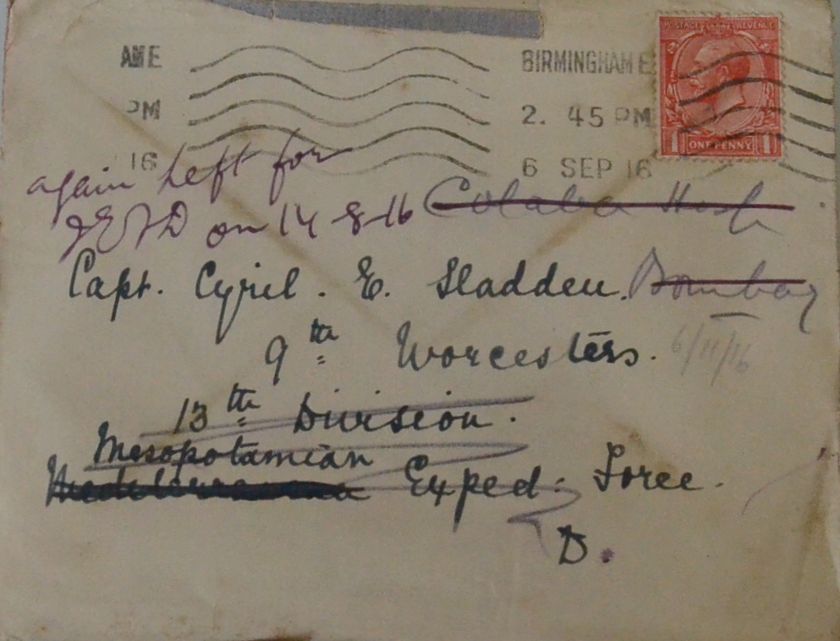 AME
PM
16
BIRMINGHAM E
2. 45 PM
6 SEP 16
POSTAGE REVENUE
ONE PENNY
again Left for
IEFD on 14-8-16
Colaba Hosp
Bombay
Capt. Cyril. E. Sladden.
9th Worcesters.
6/11/16
13th Division.
Mesopotamian
Mediterranean Exped. Force.
D.